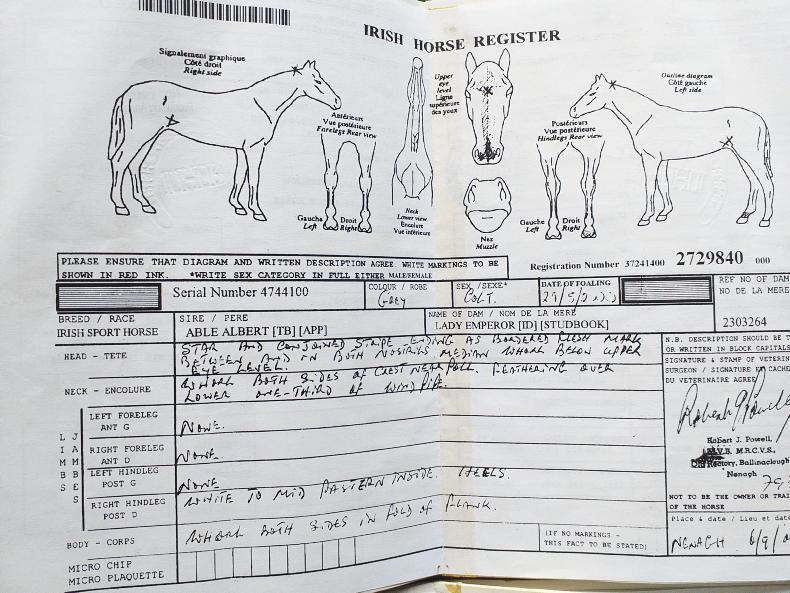 IRISH HORSE REGISTER
Signalement graphique
Côté droit
Right side
Antérieurs
Vue postérieure
Forelegs Rear view
Gauche
Left
Droit
Right
Upper
eye
level
Ligne
supérieure
des yeux
Neck
Lower view
Encolure
Vue inférieure
Nez
Muzzle
Postérieurs
Vue postérieure
Hindlegs Rear view
Gauche
Left
Droit
Right
Outline diagram
Côté gauche
Left side
PLEASE ENSURE THAT DIAGRAM AND WRITTEN DESCRIPTION AGREE. WHITE MARKINGS TO BE
SHOWN IN RED INK. *WRITE SEX CATEGORY IN FULL EITHER MALE/FEMALE
Registration Number 37241400 2729840 000
Serial Number 4744100
COLOUR / ROBE
Grey
SEX /SEXE*
COLT.
DATE OF FOALING
29/5/
REF NO OF DAM
NO DE LA MERE
2303264
BREED / RACE
IRISH SPORT HORSE
SIRE / PERE
ABLE ALBERT [TB] [APP]
NAME OF DAM / NOM DE LA MERE
LADY EMPEROR [ID] [STUDBOOK]
HEAD - TETE
STAR AND CONJOINED STRIPE ENDING AS BORDERED FLESH MARK
BETWEEN AND IN BOTH NOSTRILS. MEDIAN WHORL BELOW UPPER
EYE LEVEL.
NECK - ENCOLURE
WHORL BOTH SIDES OF CREST NEAR POLL. FEATHERING OVER
LOWER ONE-THIRD OF WINDPIPE.
LIMBS
JAMBES
LEFT FORELEG
ANT G
NONE.
RIGHT FORELEG
ANT D
NONE.
LEFT HINDLEG
POST G
NONE
RIGHT HINDLEG
POST D
WHITE TO MID PASTERN INSIDE. HEELS.
BODY - CORPS
WHORL BOTH SIDES IN FOLD OF FLANK.
(IF NO MARKINGS -
THIS FACT TO BE STATED)
MICRO CHIP
MICRO PLAQUETTE
N.B. DESCRIPTION SHOULD BE T
OR WRITTEN IN BLOCK CAPITALS
SIGNATURE & STAMP OF VETERIN
SURGEON / SIGNATURE ET CACHE
DU VETERINAIRE AGREE
Robert J. Powell,
M.V.B. M.R.C.V.S.,
Old Rectory, Ballinaclough
Nenagh
NOT TO BE THE OWNER OR TRAI
OF THE HORSE
Place & date / Lieu et date
NENAGH 6/9/